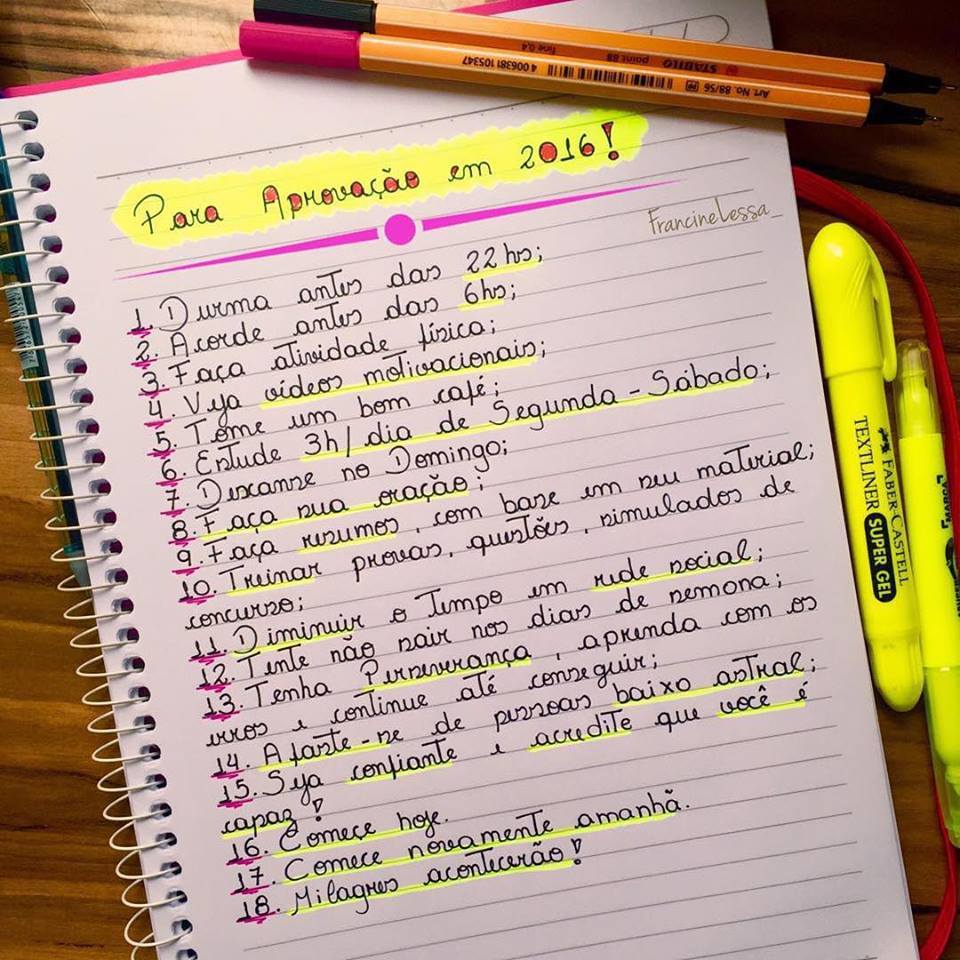 STABILO point 88 fine 0.4
Art. No. 88/56
4 006381 105347
Para Aprovação em 2016!
FrancineLessa_
1. Durma antes das 22hs;
2. Acorde antes das 6hs;
3. Faça atividade física;
4. Veja vídeos motivacionais;
5. Tome um bom café;
6. Estude 3h/dia de Segunda - Sábado;
7. Descanse no Domingo;
8. Faça sua oração;
9. Faça resumos, com base em seu material;
10. Treinar provas, questões, simulados de
concurso;
11. Diminuir o Tempo em rede social;
12. Tente não sair nos dias de semana;
13. Tenha Perseverança, aprenda com os
erros e continue até conseguir;
14. Afaste-se de pessoas baixo astral;
15. Seja confiante e acredite que você é
capaz!
16. Comece hoje.
17. Comece novamente amanhã.
18. Milagres acontecerão!
FABER-CASTELL
TEXTLINER SUPER GEL